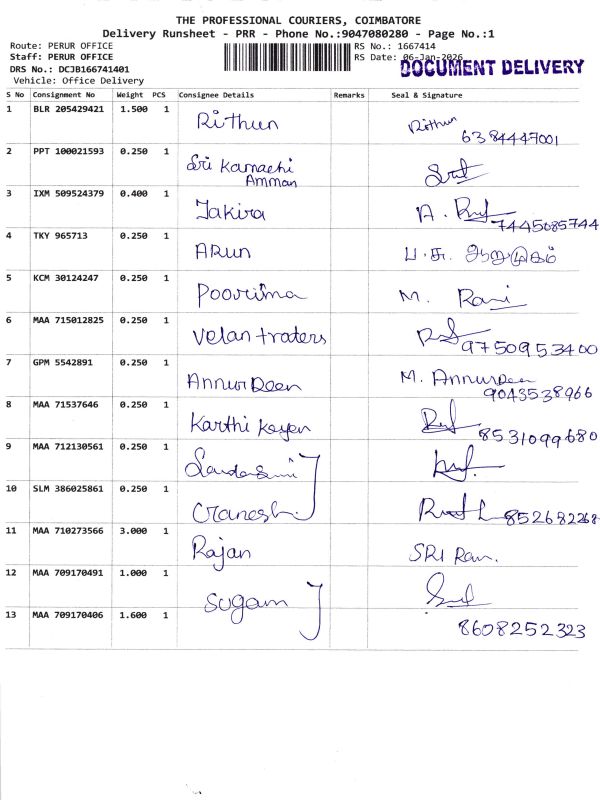 THE PROFESSIONAL COURIERS, COIMBATORE
Delivery Runsheet - PRR - Phone No.:9047080280 - Page No.:1
Route: PERUR OFFICE
RS No.: 1667414
Staff: PERUR OFFICE
RS Date: 06-Jan-2026
DRS No.: DCJB166741401
DOCUMENT DELIVERY
Vehicle: Office Delivery
S No Consignment No Weight PCS Consignee Details Remarks Seal & Signature
1 BLR 205429421 1.500 1 Rithun Rithun
6384447001
2 PPT 100021593 0.250 1 Sri Kamachi
Amman
3 IXM 509524379 0.400 1 Jakira A.
7445085744
4 TKY 965713 0.250 1 ARUN ப.சு. ஆறுமுகம்
5 KCM 30124247 0.250 1 Poorima M. Rani
6 MAA 715012825 0.250 1 Velan traters
9750953400
7 GPM 5542891 0.250 1 Annur Deen M. Annurdeen
9043538966
8 MAA 71537646 0.250 1 Karthi Keyen
8531099680
9 MAA 712130561 0.250 1
10 SLM 386025861 0.250 1 Cranesh
852682268
11 MAA 710273566 3.000 1 Rajan SRI Ram.
12 MAA 709170491 1.000 1 Sugam
13 MAA 709170406 1.600 1
8608252323